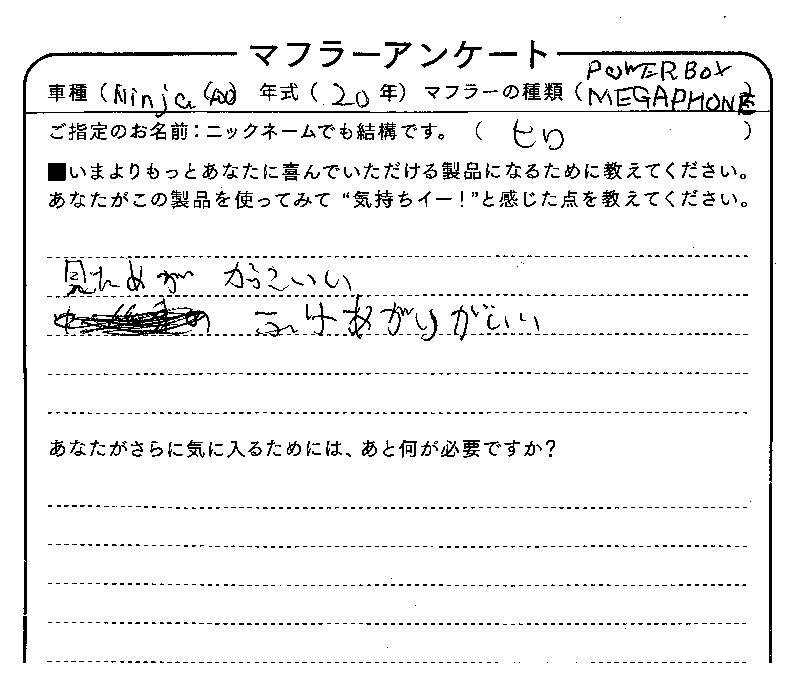 マフラーアンケート
車種(Ninja400) 年式(20年) マフラーの種類(POWERBOX MEGAPHONE)
ご指定のお名前:ニックネームでも結構です。( ヒロ )
■いまよりもっとあなたに喜んでいただける製品になるために教えてください。
あなたがこの製品を使ってみて“気持ちイー!”と感じた点を教えてください。
見ためが かっこいい
ふけあがりがいい
あなたがさらに気に入るためには、あと何が必要ですか?